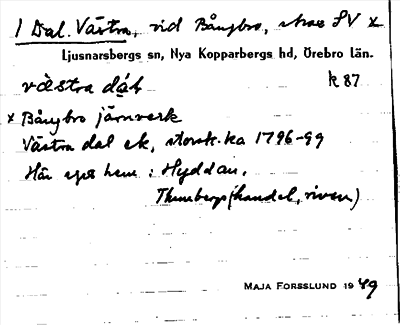 1 Dal. Västra, vid Bångbro, strax SV x
Ljusnarsbergs sn, Nya Kopparbergs hd, Örebro län.
västra dáɫ k 87
x Bångbro järnverk
Västra dal ek, storsk. ka 1796-99
Här eget hem: Hyddan,
Thunbergs (handel, riven)
MAJA FORSSLUND 1949